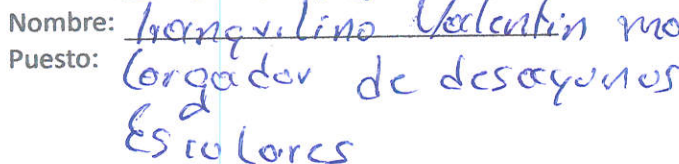 Nombre: Tranquilino Valentin mo
Puesto: Cargador de desayunos
Escolares